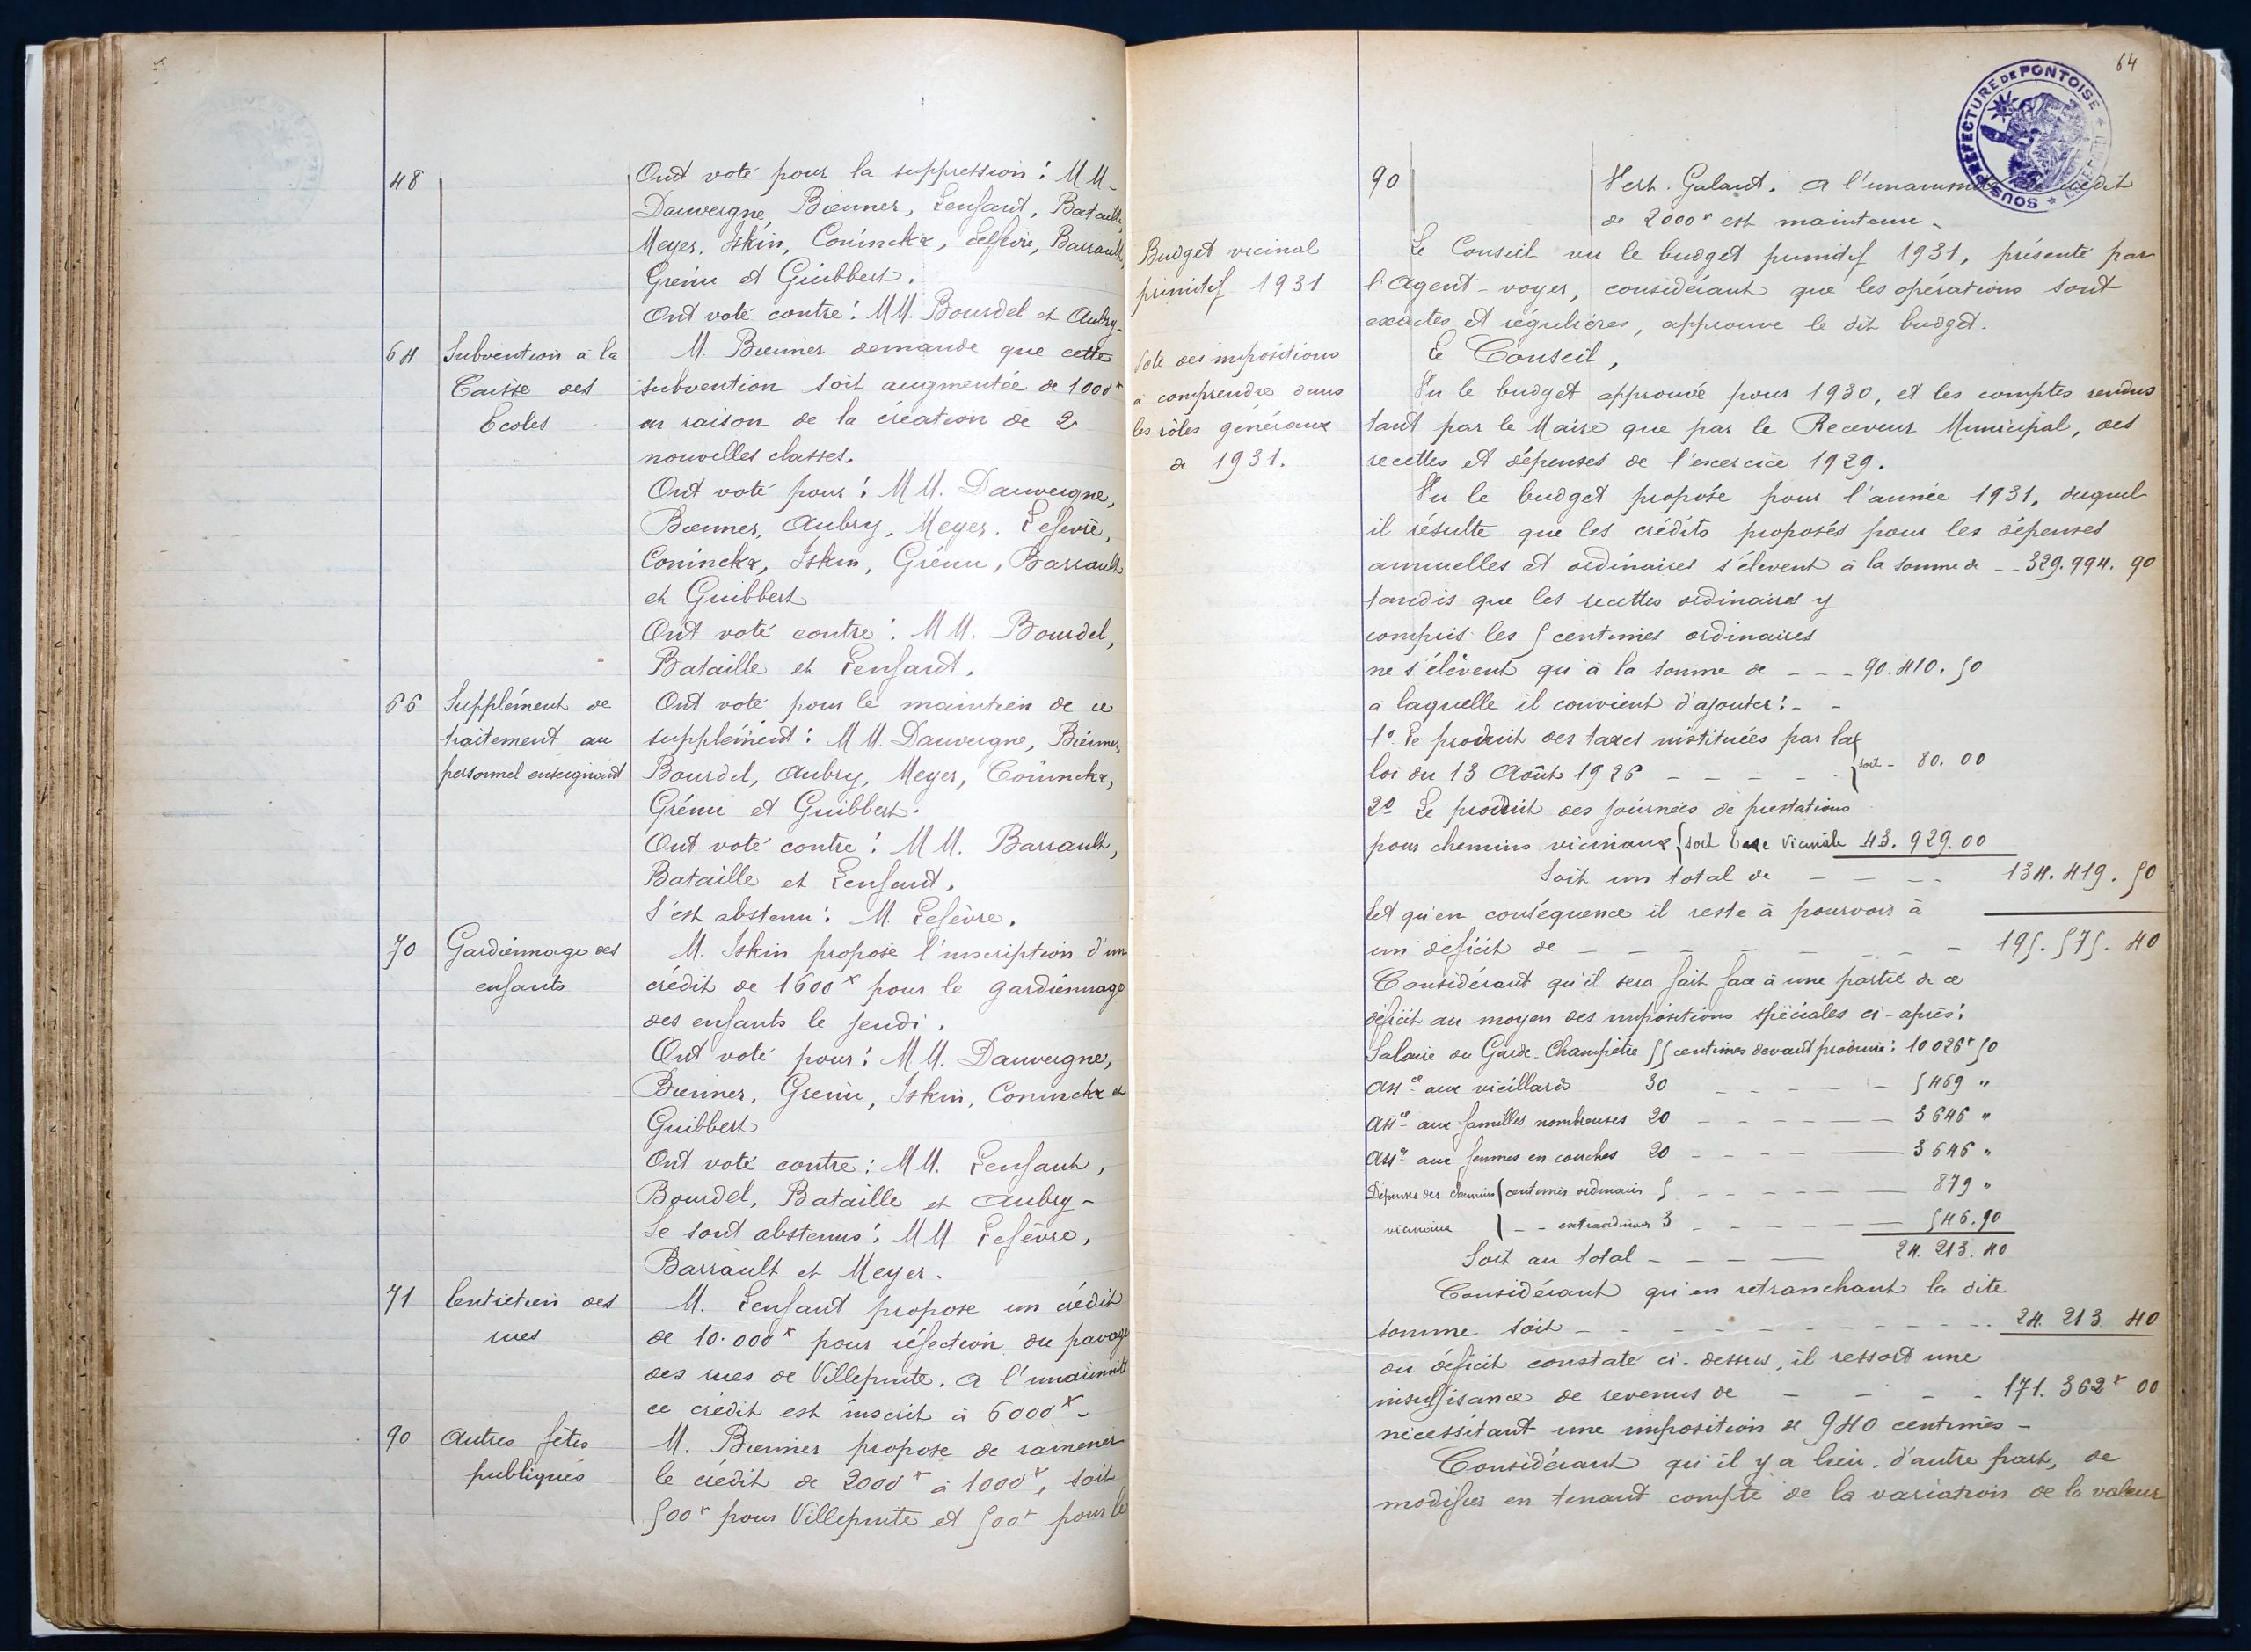 48
Ont voté pour la suppression : MM.
Dauvergne, Bienner, Lenfant, Bataille,
Meyer, Iskin, Coninckx, Lefèvre, Barrault,
Grénu et Guibbert.
Ont voté contre : MM. Bourdel et Aubry.
64 Subvention à la
Caisse des
Ecoles
M. Bienner demande que cette
subvention soit augmentée de 1000 f
en raison de la création de 2
nouvelles classes.
Ont voté pour : MM. Dauvergne,
Bienner, Aubry, Meyer, Lefèvre,
Coninckx, Iskin, Grénu, Barrault
et Guibbert
Ont voté contre : MM. Bourdel,
Bataille et Lenfant.
66 Supplément de
traitement au
personnel enseignant
Ont voté pour le maintien de ce
supplément : MM. Dauvergne, Bienner,
Bourdel, Aubry, Meyer, Coninckx,
Grénu et Guibbert.
Ont voté contre : MM. Barrault,
Bataille et Lenfant.
S'est abstenu : M. Lefèvre.
70 Gardiennage des
enfants
M. Iskin propose l'inscription d'un
crédit de 1600 f pour le gardiennage
des enfants le jeudi.
Ont voté pour : MM. Dauvergne,
Bienner, Grénu, Iskin, Coninckx et
Guibbert
Ont voté contre : MM. Lenfant,
Bourdel, Bataille et Aubry -
Se sont abstenus : MM Lefèvre,
Barrault et Meyer.
71 Entretien des
rues
M. Lenfant propose un crédit
de 10.000 f pour réfection du pavage
des rues de Villepinte. A l'unanimité
ce crédit est inscrit à 6000 f -
90 Autres fêtes
publiques
M. Bienner propose de ramener
le crédit de 2000 f à 1000 f, soit
500 f pour Villepinte et 500 f pour le
64
SOUS-PRÉFECTURE DE PONTOISE
90
Vert. Galant. A l'unanimité ce crédit
de 2000 f est maintenu -
Budget vicinal
primitif 1931
Le Conseil vu le budget primitif 1931, présenté par
l'Agent-voyer, considérant que les opérations sont
exactes et régulières, approuve le dit budget.
Vote des impositions
à comprendre dans
les rôles généraux
de 1931.
Le Conseil,
Vu le budget approuvé pour 1930, et les comptes rendus
tant par le Maire que par le Receveur Municipal, des
recettes et dépenses de l'exercice 1929.
Vu le budget proposé pour l'année 1931, duquel
il résulte que les crédits proposés pour les dépenses
annuelles et ordinaires s'élevent à la somme de - - 329.994. 90
tandis que les recettes ordinaires y
compris les 5 centimes ordinaires
ne s'élèvent qu'à la somme de - - - 90.410. 50
a laquelle il convient d'ajouter : - -
1° Le produit des taxes instituées par la
loi du 13 Août 1926 - - - - - { soit - 80. 00
2° Le produit des journées de prestations
pour chemins vicinaux { soit taxe vicinale 43.929.00
Soit un total de - - - - 134.419. 50
Et qu'en conséquence il reste à pourvoir à
un déficit de - - - - - - - - 195.575. 40
Considérant qu'il sera fait face à une partie de ce
déficit au moyen des impositions spéciales ci-après :
Salaire du Garde-Champêtre 55 centimes devant produire : 10026 f 50
Assce aux vieillards 30 - - - - - 5469 "
Assce aux familles nombreuses 20 - - - - - - 3646 "
Assce aux femmes en couches 20 - - - - - 3646 "
Dépenses des chemins { centimes ordinaires 5 - - - - - - 879 "
vicinaux { - - extraordinaires 3 - - - - - - 546.90
Soit au total - - - - - 24.213.40
Considérant qu'en retranchant la dite
somme soit - - - - - - - - - - - 24.213 40
du déficit constaté ci-dessus, il ressort une
insuffisance de revenus de - - - - 171.362 f 00
nécessitant une imposition de 940 centimes -
Considérant qu'il y a lieu, d'autre part, de
modifier en tenant compte de la variation de la valeur